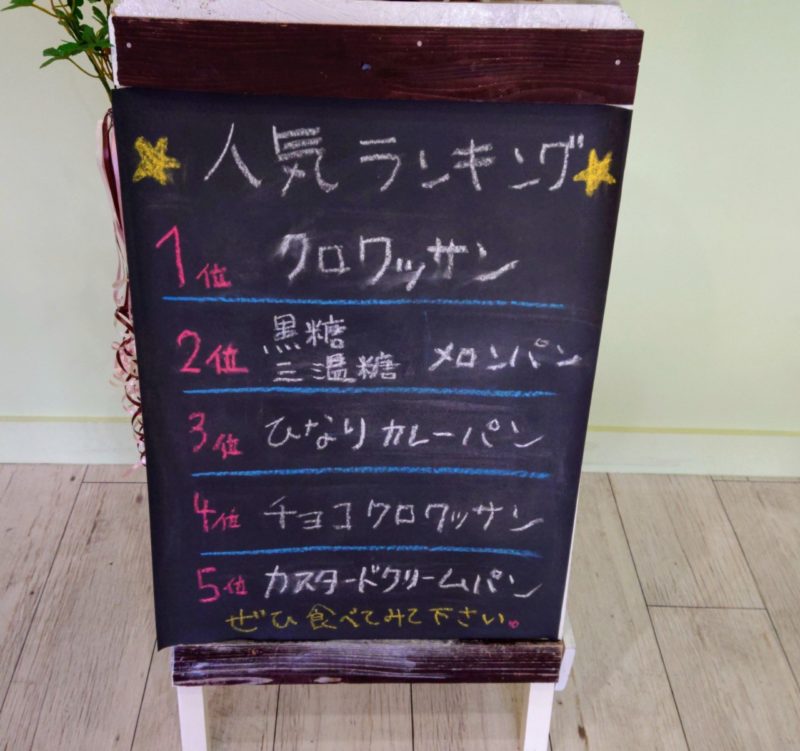 人気ランキング
1位 クロワッサン
2位 黒糖 三温糖 メロンパン
3位 ひなりカレーパン
4位 チョコクロワッサン
5位 カスタードクリームパン
ぜひ食べてみて下さい。